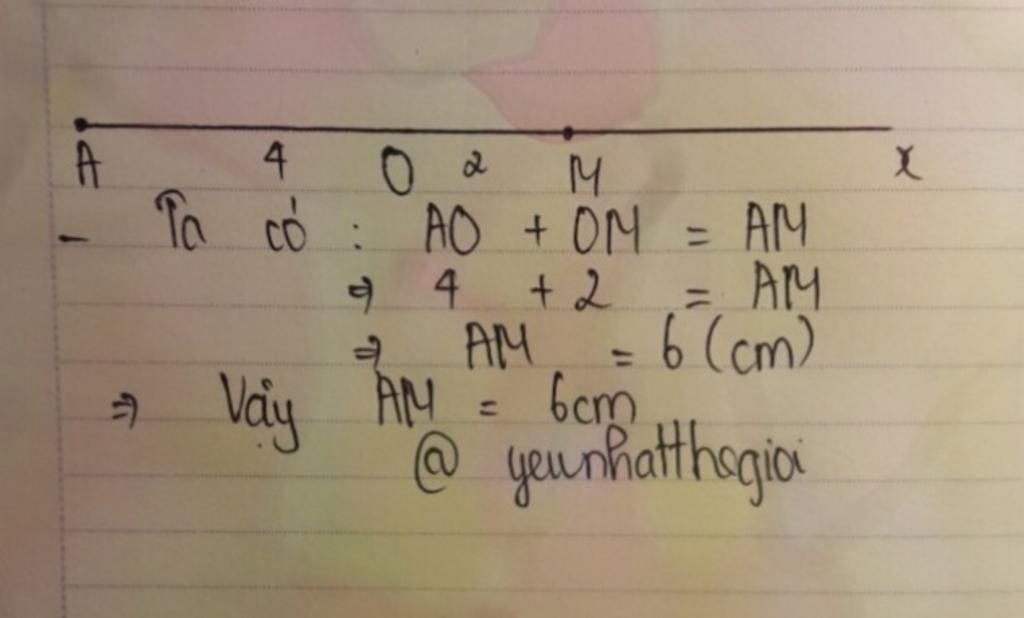 A 4 O 2 M x
- Ta có : AO + OM = AM
⇒ 4 + 2 = AM
⇒ AM = 6 (cm)
⇒ Vậy AM = 6cm
@ yeunhatthegioi